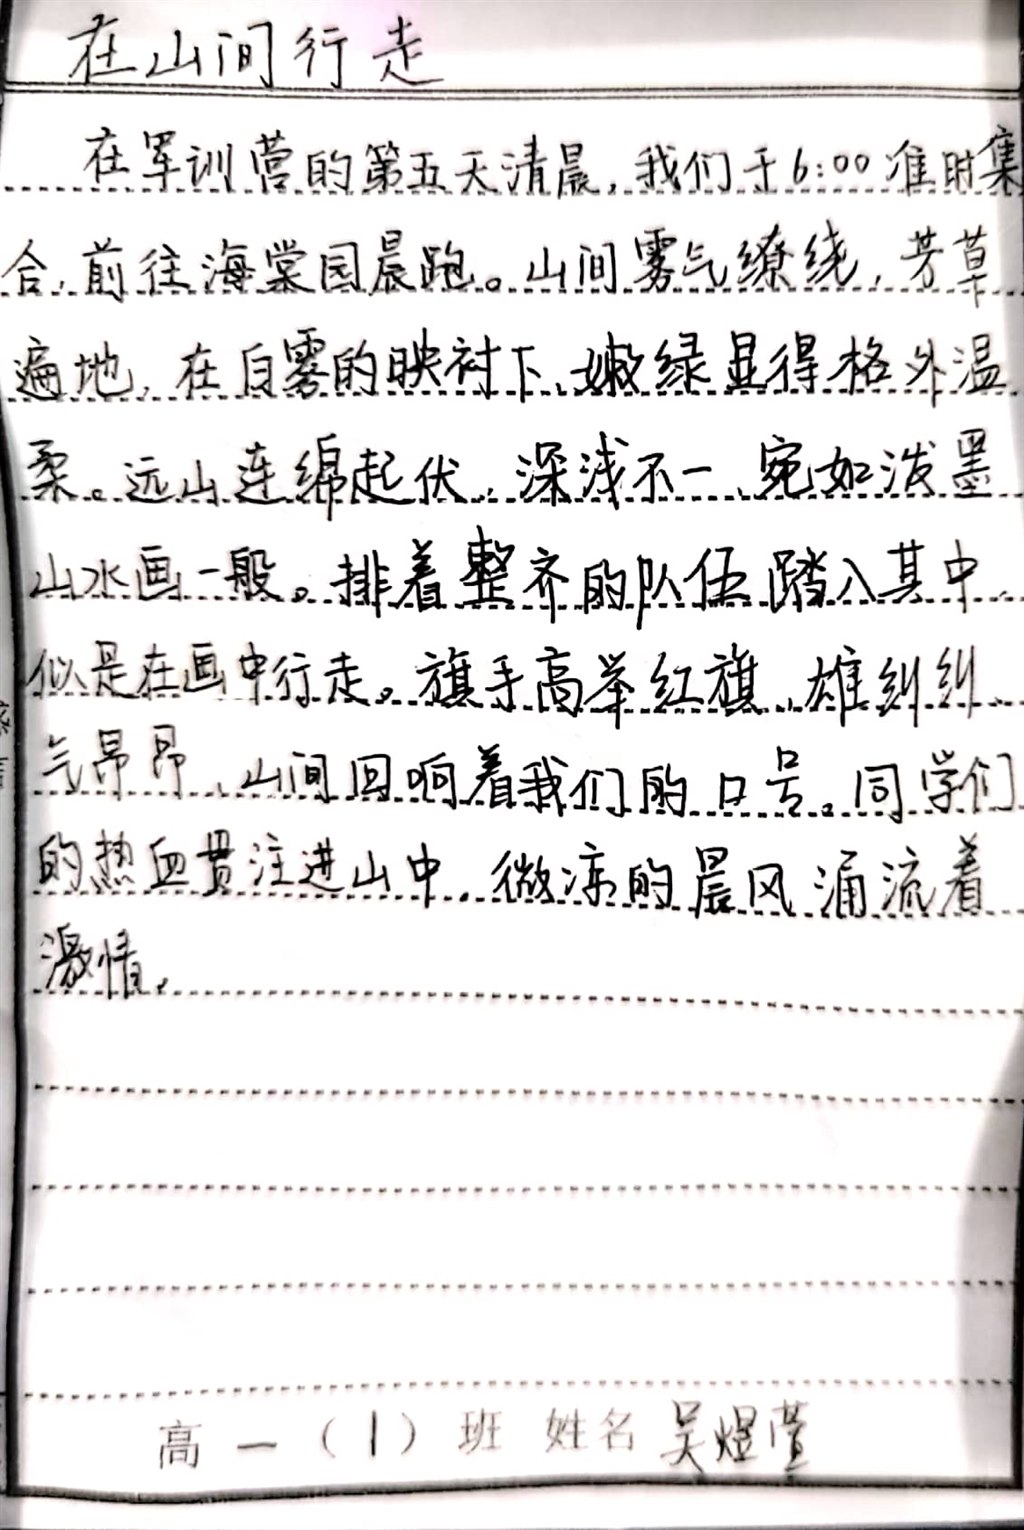 在山间行走
在军训营的第五天清晨,我们于6:00准时集
合,前往海棠园晨跑。山间雾气缭绕,芳草
遍地,在白雾的映衬下、嫩绿显得格外温
柔。远山连绵起伏,深浅不一、宛如泼墨
山水画一般。排着整齐的队伍踏入其中,
似是在画中行走。旗手高举红旗,雄纠纠、
气昂昂,山间回响着我们的口号。同学们
的热血贯注进山中,微凉的晨风涌流着
激情。
高一(1)班 姓名 吴煜萱